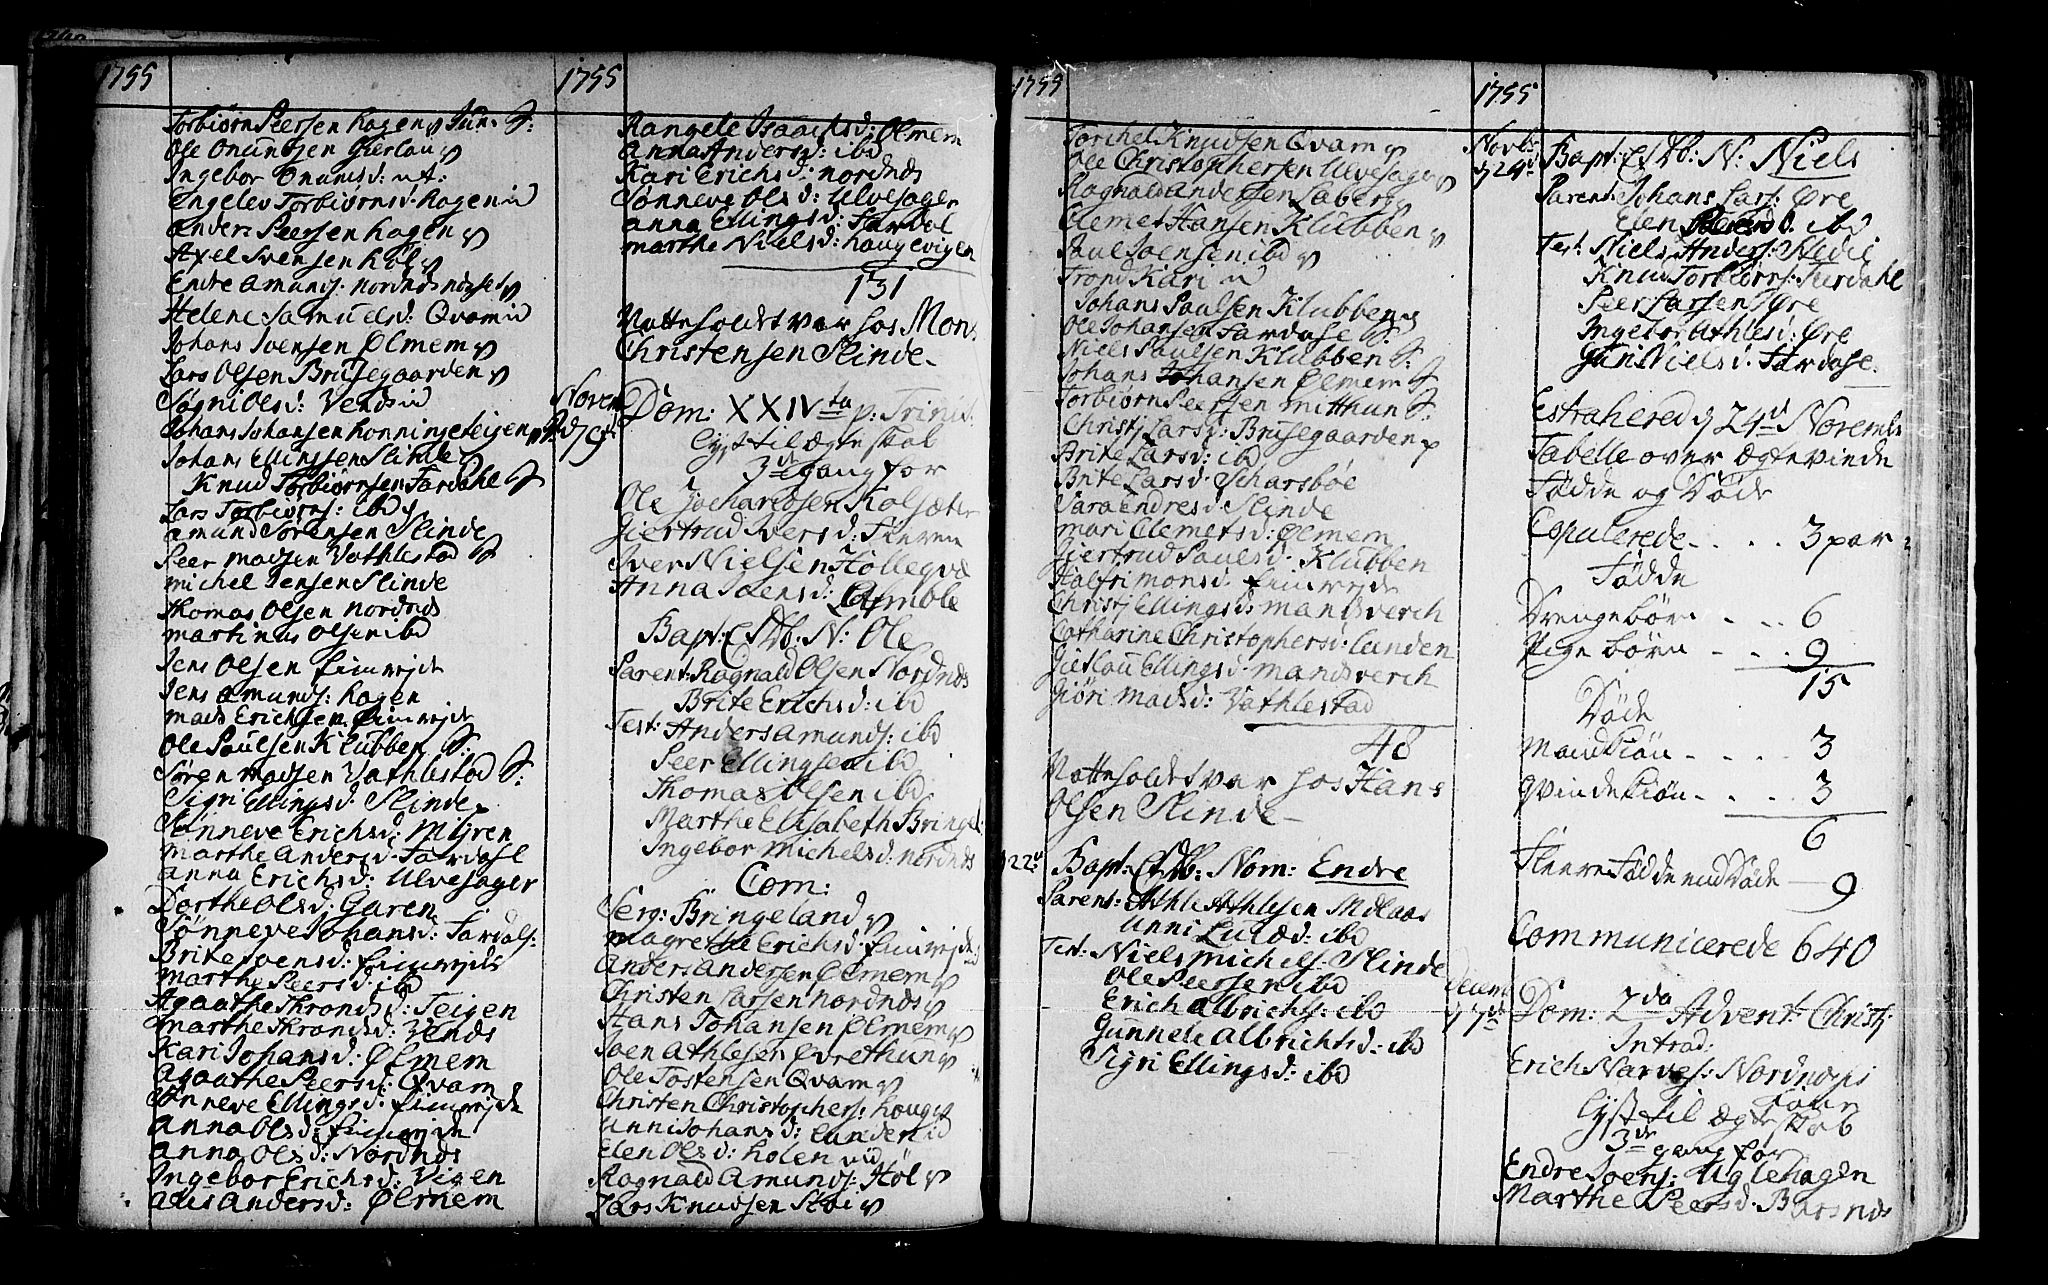 1755
Torbiørn Peersen Hagen Jun: S:
Ole Onundsen Gierlau
Ingebor Onunsd: ut:
Engelev Torbiørnsd: Hagen
Anders Peersen Hagen
Axel Svensen Høl
Endre Amunds: Nordnds
Helene Samuelsd: Qvam
Johans Ivensen Ølmem
Lars Olsen Brusegaarden
Søgni Olsd: Vends
Johans Johansen Honningsteigen
Johans Ellingsen Slinde
Knud Torbiørnsen Fardahl S
Lars Torbiørns: ibd
Amund Sørensen Slinde
Peer Madsen Vathlestad S
Michel Jensen Slinde
Thomas Olsen Nordnds
Martinus Olsen ibd
Jens Olsen Fimrejde
Jens Amunds: Hagen
Mads Erichsen Fimrejde
Ole Paulsen Klubben S:
Søren Madsen Vathlestad S:
Sigri Ellingsd: Slinde
Sønneve Erichsd: Myren
Marthe Andersd: Fardahl
Anna Erichsd: Ulvesager
Dorthe Olsd: Garen
Sønneve Johansd: Fardals:
Brite Joensd: Fimrejde
Marthe Peersd: ibd
Agaathe Thronsd: Teigen
Marthe Thronsd: Vends
Kari Johansd: Ølmem
Agaathe Peersd: Qvam
Sønneve Ellingsd: Fimrejde
Anna Olsd: Fimrejde
Anna Olsd: Nordnds
Ingebor Erichsd: Vigen
Andersd: Ølmem
1755
Rangele Isaachsd: Olmem
Anna Andersd: ibd
Kari Erichsd: Nordnds
Sønneve Olsd: Ulvesager
Anna Ellingsd: Fardal
Marthe Nielsd: Haugevigen
131
Natteholdet var hos Mons
Christensen Slinde
Novem
Dom: XXIV ta p: Trinit.
Lyst til Ægteskab
3de gang for
Ole Zachariasen Kolsæter
Giertrud Iversd:
Iver Nielsen Hollegvæ
Anna Joensd: Amble
Bapt: Esdb: N: Ole
Parent: Ragnald Olsen Nordnds
Brite Erichsd: ibd
Test: Anders Amunds: ibd
Peer Ellingsen ibd
Thomas Olsen ibd
Marthe Elisabeth Bringel:
Ingebor Michelsd: Nordnds
Com:
Serg: Bringeland
Magrethe Erichsd: Fimrejde
Anders Andersen Ølmem
Christen Larsen Nordnds
Hans Johansen Ølmem
Joen Athlesen Øvrethun
Ole Tostensen Qvam
Christen Christophers: Houg
Anni Johansd: Lunden
Elen Olsd: Holen
Ragnald Amunds: Høl
Lars Knudsen Stoi
1755
Torchel Knudsen Qvam
Ole Christophersen Ulvesager
Ragnald Andersen Laberg
Clemet Hansen Klubben
Paul Joensen ibd
Trond Kari
Johans Paulsen Klubben
Ole Johansen Fardahl S:
Niels Paulsen Klubben S:
Johans Johansen Ølmem S
Torbiørn Peersen Mitthun S:
Christj Larsd: Brusegaarden
Brite Larsd: ibd
Brite Larsd: Scharsbøe
Sara Endresd: Slinde
Mari Clemetsd: Ølmem
Giertrud Paulsd: Klubben
Halfri Monsd: Fimrejde
Christj Ellingsd: Mandsverch
Catharine Christophersd: Lunden
Gietlau Ellingsd: Mandsverch
Giøri Madsd: Vathlestad
48
Natteholdet var hos Hans
Olsen Slinde
d 22d Bapt: Esdb: Nom: Endre
Parent: Athle Athlesen Mdlaas
Unni Lulæd: ibd
Test: Niels Michels: Slinde
Ole Peersen ibd
Erich Albrichts: ibd
Gunnele Albrichtsd: ibd
Sigri Ellingsd: ibd
1755
Novbr
d 24d Bapt: Esdb: N: Niels
Parent: Johans Lars: Øre
Elen Peersd: ibd
Test: Niels Anders: Stedie
Knud Torbiørns: Furdahl
Peer Larsen Øre
Ingebor Athlesd: Øre
Guri Nielsd: Fardahl.
Estrahered d 24d Novembr
Tabelle over Ægteviede
Fødde og Døde
Copulerede . . . . 3 par
Fødde
Drengebørn . . . 6
Pigebørn . . . . 9
15
Døde
Mandkiøn . . . . 3
Qvindekiøn . . . . 3
6
Fleere Fødde end Døde — 9
Communicerede 640
Decem
d 7de Dom: 2da Advent: Christj
Introd:
Erich Narves: Nordnæs
kone
Lyst til Ægteskab
3de gang for
Endre Joens: Uglehagen
Marthe Peersd: Barsnds